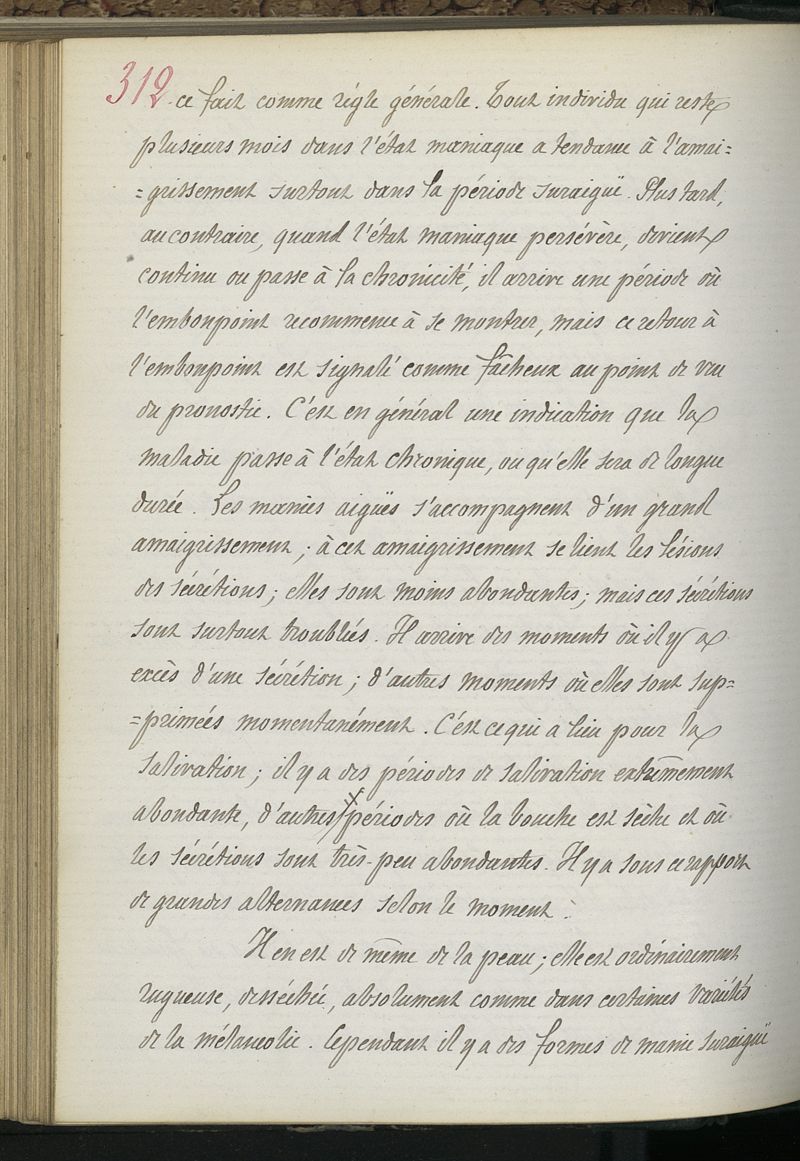 312. ce fait comme règle générale. Tout individu qui reste
plusieurs mois dans l'état maniaque a tendance à l'amai=
=grissement surtout dans la période suraigüe. Plus tard,
au contraire, quand l'état maniaque persévère, devient
continu ou passe à la chronicité, il arrive une période où
l'embonpoint recommence à se montrer, mais ce retour à
l'embonpoint est signalé comme fâcheux au point de vue
du pronostic. C'est en général une indication que la
maladie passe à l'état chronique, ou qu'elle sera de longue
durée. Les manies aigües s'accompagnent d'un grand
amaigrissement; à cet amaigrissement se lient les lésions
des sécrétions; elles sont moins abondantes; mais ces sécrétions
sont surtout troublées. Il arrive des moments où il y a
excès d'une sécrétion; d'autres moments où elles sont sup=
=primées momentanément. C'est ce qui a lieu pour la
salivation; il y a des périodes de salivation extrêmement
abondante, d'autres périodes où la bouche est sèche et où
les sécrétions sont très-peu abondantes. Il y a sous ce rapport
de grandes alternances selon le moment.
Il en est de même de la peau; elle est ordinairement
rugueuse, desséchée, absolument comme dans certaines variétés
de la mélancolie. Cependant il y a des formes de manie suraigüe